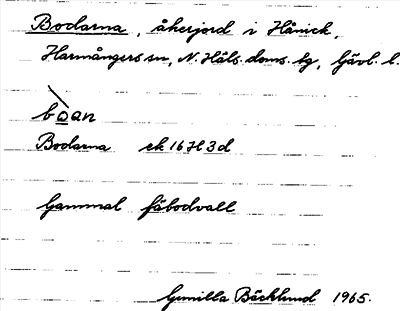 Bodarna, åkerjord i Hånick,
Harmångers sn, N. Häls. doms. tg, Gävl. l.
boan
Bodarna ek 16 H 3 d
Gammal fäbodvall
Gunilla Bäcklund 1965.